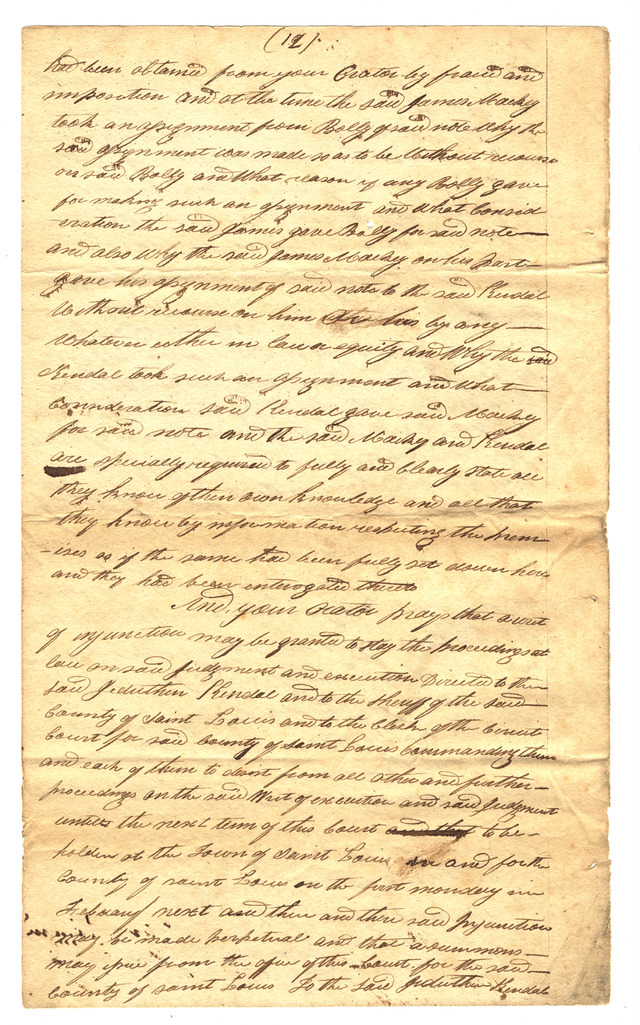 (12).
had been obtained from your Orator by fraud and
imposition and at the time the said James Mackey
took an assignment from Bolly of said note Why the
said assignment was made so as to be Without recourse
on said Bolly and What reason if any Bolly gave
for making such an assignment and What Consid
eration the said James gave Bolly for said note—
and also Why the said James Mackey on his Part—
gave his assignment of said note to the said Kendal
Without recourse on him by any—
Whatever either in law or equity and Why the said
Kendal took such an assignment and What—
Consideration said Kendal gave said Mackey
for said note and the said Mackey and Kendal
are specially required to fully and Clearly state all
they know of their own knowledge and all that
they know by information respecting the prem—
—ises as if the same had been fully set down here
and they had been interogated thereto
And your Orator prays that a writ
of injunction may be granted to stay the proceedings at
law on said Judgment and execution Directed to the
said Jeduthen Kendal and to the sheriff of the said—
County of Saint Louis and to the Clerk of the Circuit
Court for said County of Saint Louis Commanding them
and each of them to desist from all other and further—
proceedings on the said Writ of execution and said Judgment
untill the next term of this Court to be—
holden at the Town of Saint Louis in and for the
County of Saint Louis on the first monday in
February next and then and there said Injunction
may be made perpetual and that a summons—
may issue from the office of this Court for the said—
County of Saint Louis To the said Jeduthen Kendal